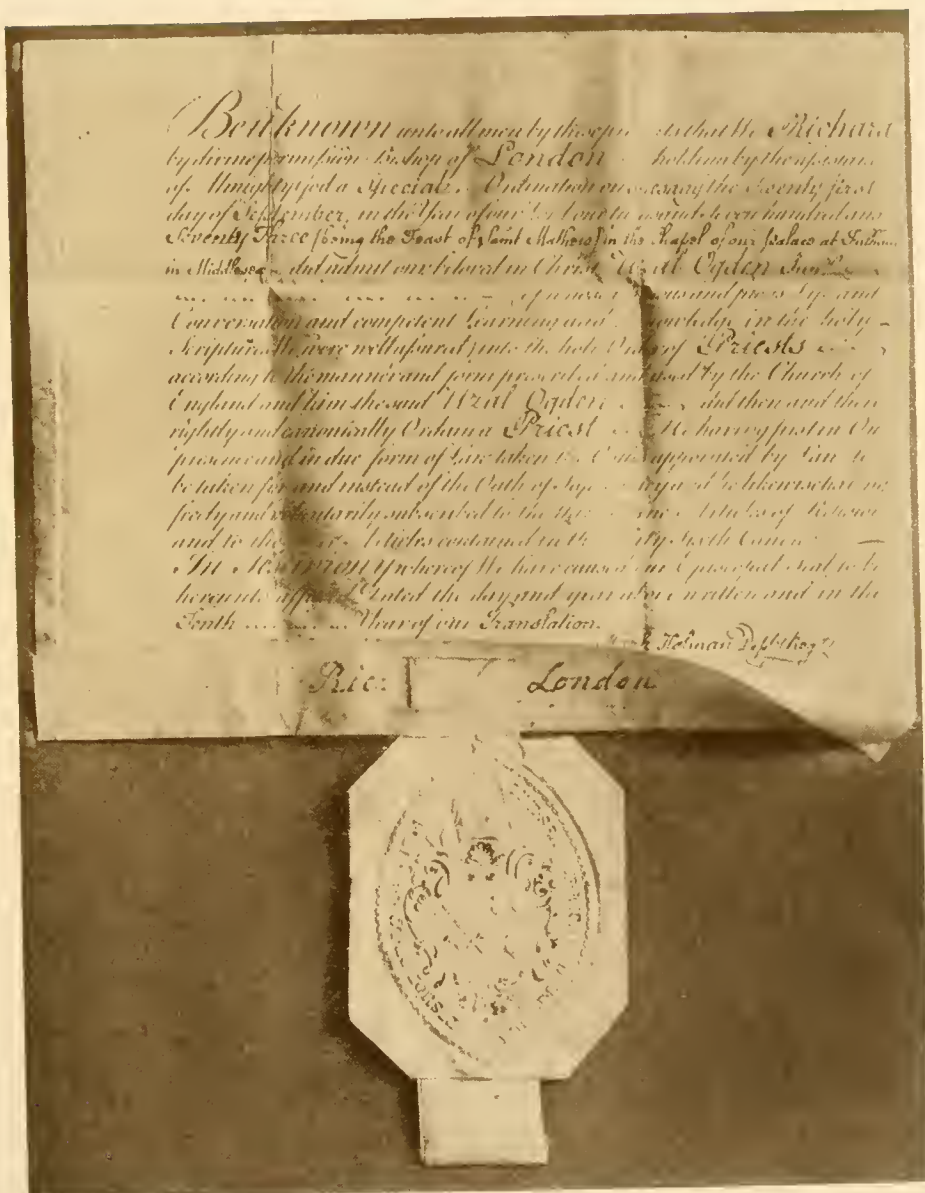 Be it known unto all men by these p that We Richard
by divine permission Bishop of London holding by the assistance
of Almighty God a Special Ordination on the Twenty first
day of September, in the Year of our Lord One Thousand seven hundred and
Seventy Three (being the Feast of Saint Mathew) in the Chapel of our palace at Fulham
in Middlesex did admit our beloved in Christ Uzal Ogden
and pious Life and
Conversation and competent Learning and knowledge in the holy
Scriptures well assured into the holy Order of Priests
according to the manner and form prescribed and used by the Church of
England and him the said Uzal Ogden did then and there
rightly and canonically Ordain a Priest He having first in Our
presence and in due form of Law taken the Oaths appointed by Law to
be taken for and instead of the Oath of he likewise
freely and voluntarily subscribed to the Articles of Religion
and to the Articles contained in the Sixth Canon
In Testimony whereof We have caused our Episcopal Seal to be
hereunto affixed Dated the day and year above written and in the
Tenth Year of our Translation.
Holman Depty Regr
Ric: London